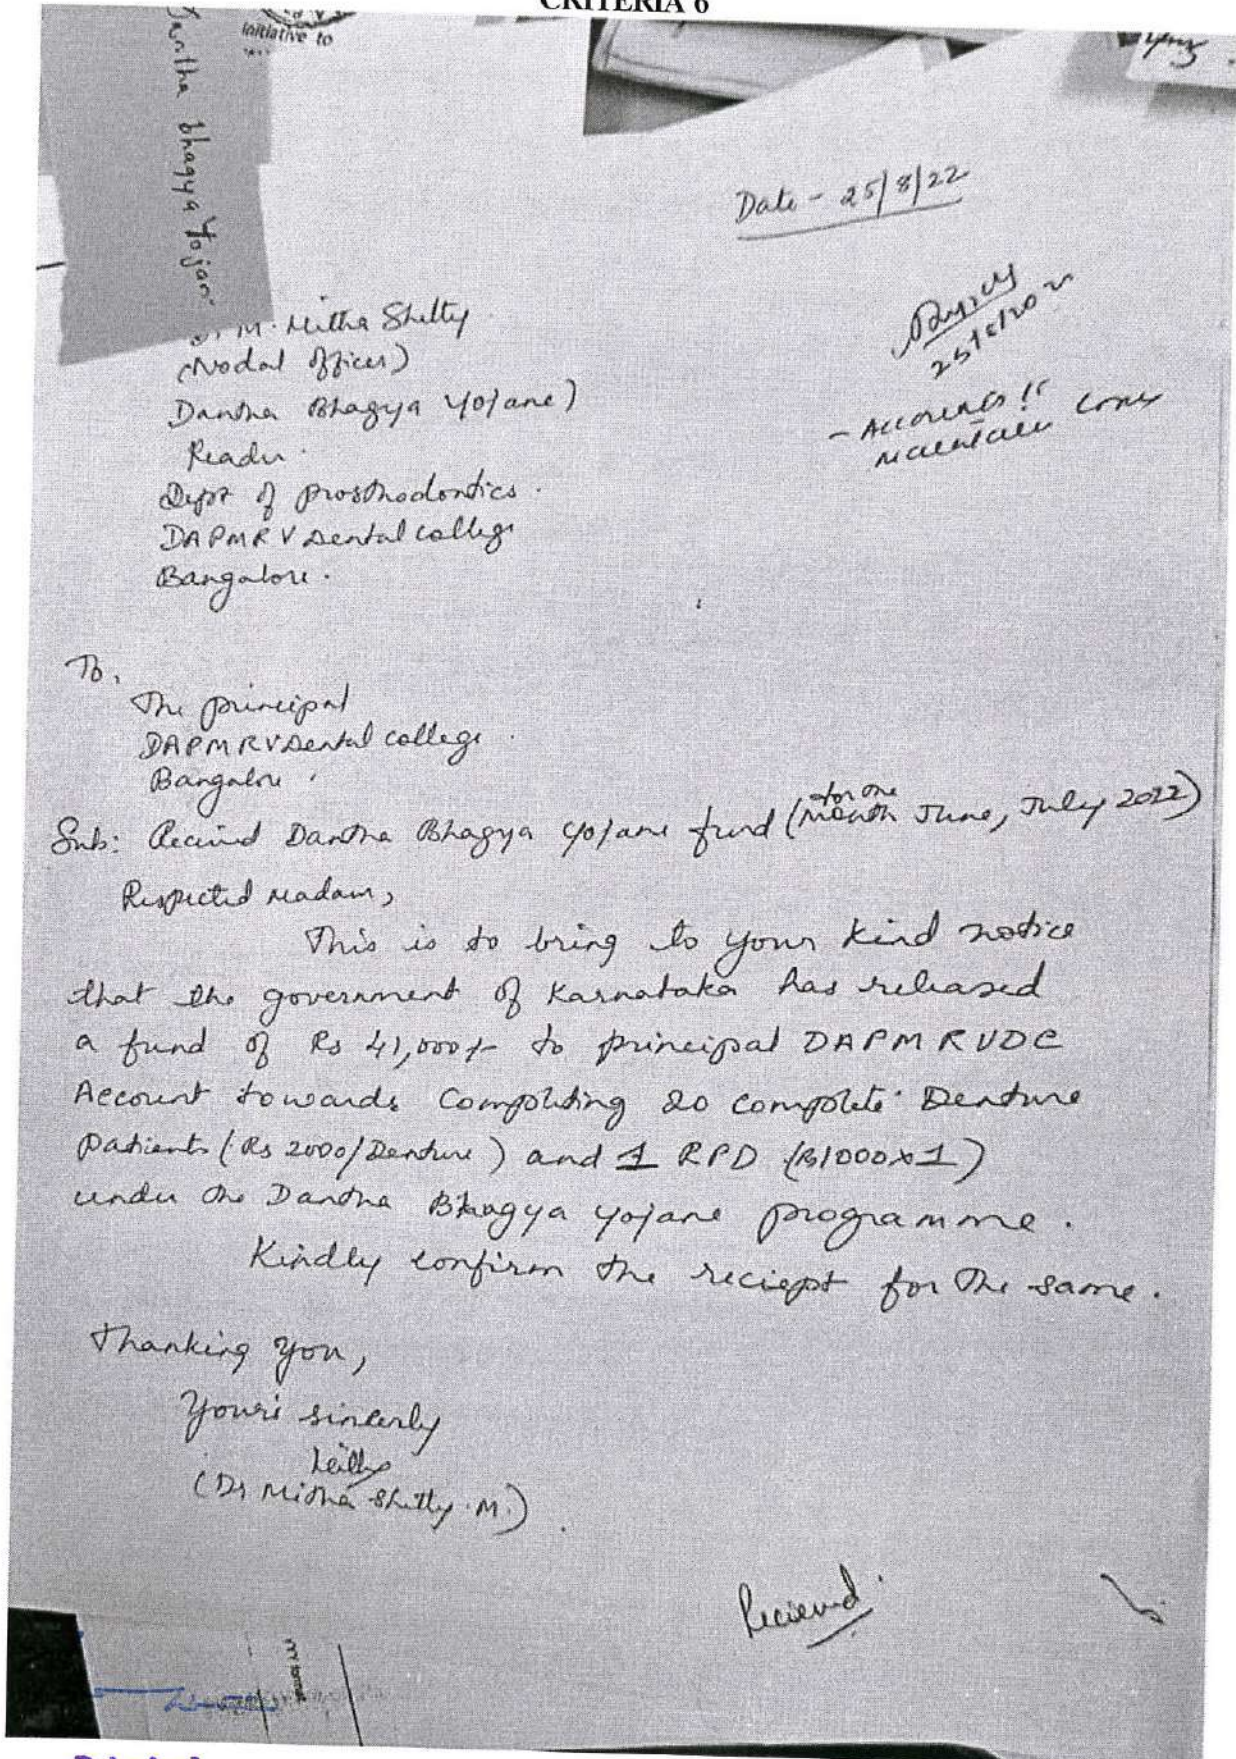 CRITERIA 6
Initiative to
Dantha bhagya Yojan
Date - 25/8/22
M. Mitha Shetty
(Nodal officer)
Dantha Bhagya Yojane)
Reader
Dept of prosthodontics.
DAPMRV Dental college
Bangalore.
- Accounts
To,
The principal
DAPMRV Dental college.
Bangalore
Sub: Recived Dantha Bhagya Yojane fund (for the Month June, July 2022)
Respected Madam,
This is to bring to your kind notice
that the government of Karnataka has released
a fund of Rs 41,000/- to principal DAPMRVDC
Account towards Completing 20 complete Denture
patients (Rs 2000/Denture) and 1 RPD (Rs1000x1)
under the Dantha Bhagya Yojane programme.
Kindly confirm the reciept for the same.
Thanking you,
Your's sincerly
(Dr Mitha Shetty. M.)
Recieved